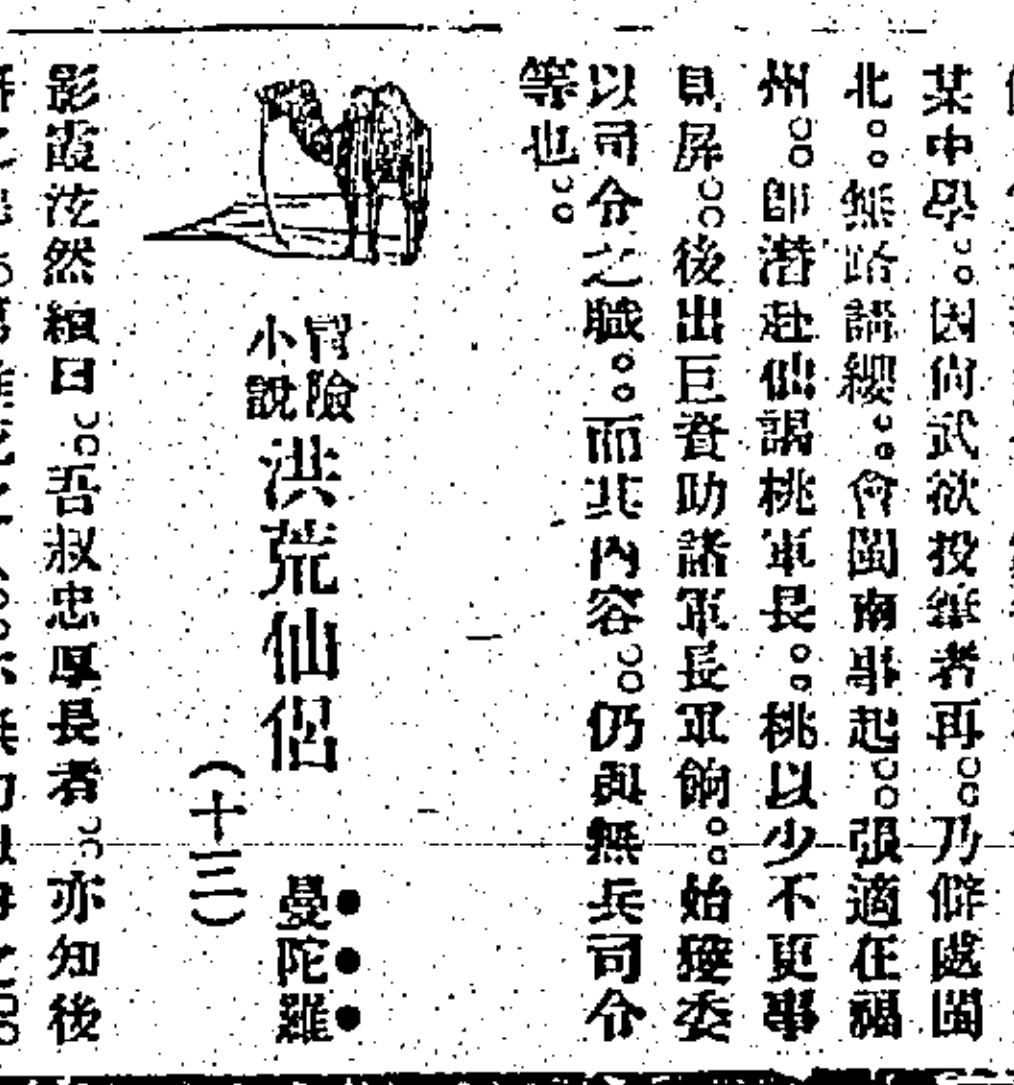 某中學。因尚武欲投筆者再。乃僻處閩
北。無路請纓。會閩南事起。張適在福
州。卽潛赴仙謁桃軍長。桃以少不更事
見屏。後出巨資助諸軍長軍餉。始獲委
以司令之職。而其內容。仍與無兵司令
等也。
冒險
小說
洪荒仙侶
(十三)
曼陀羅
影霞泫然續曰。吾叔忠厚長者。亦知後